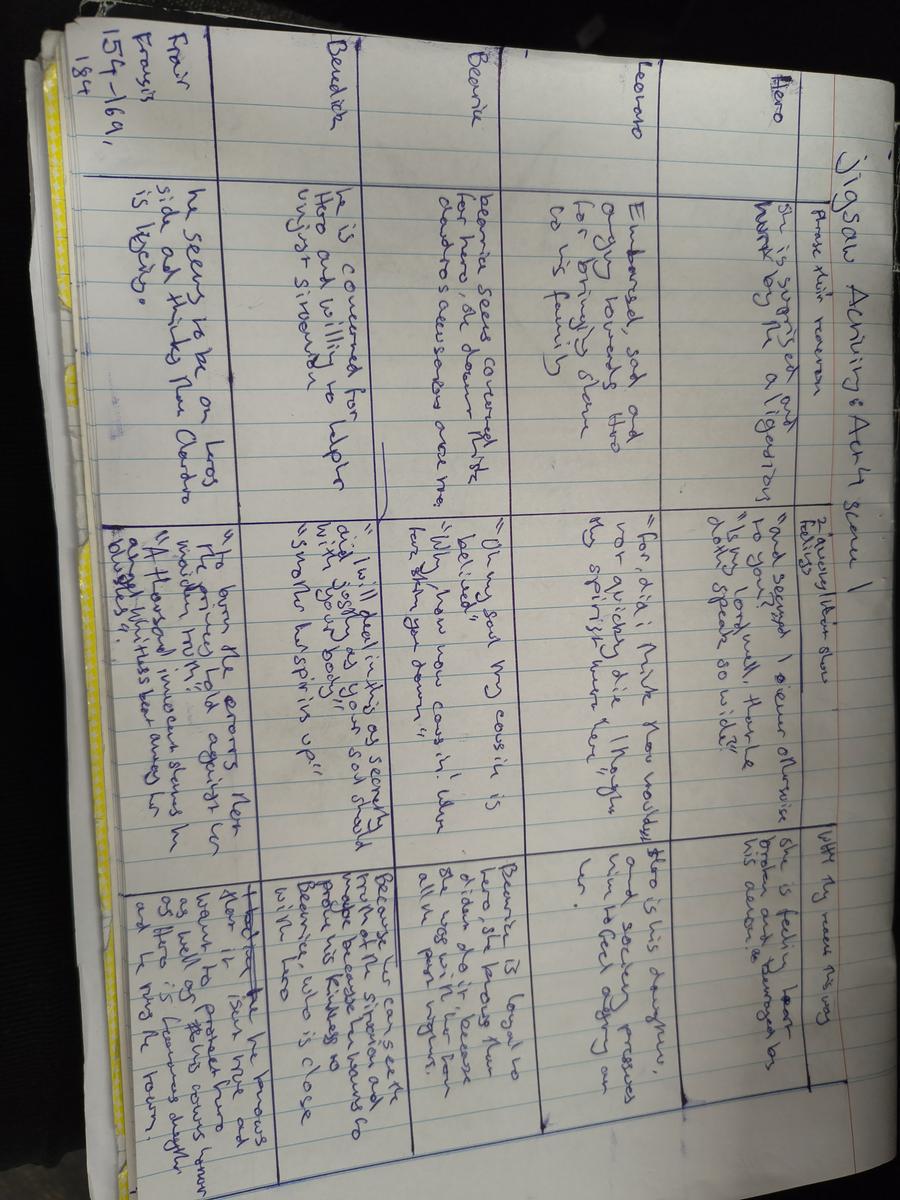 jigsaw Activity: Act 4 scene 1
Phrase their reaction
2 quotes that show
feelings
WHY they react this way
Hero
she is suprised and
hurt by the aligations
"and seemed I ever otherwise
to you?"
"Is my lord well, that he
doth speak so wide?"
she is feeling heart
broken and betrayed by
his action.
Leonato
Embarsed, sad and
angry towards Hero
for bringing shame
to his family
"For, did i think thou wouldst
not quickly die, thought
thy spirits were here"
Hero is his daughter,
and society pressures
him to feel angry on
her.
Bearice
bearice seems concerned
for hero, she doesnt think
claudios acusations are true
"Oh my soul my cousin is
belied"
"Why, how now cousin! Wher
fore sink you down"
Bearice is loyal to
hero, she knows that
didnt do it, because
she was with her for
all the past nights.
Benedick
he is concerned for
Hero and willing to help
unjust situation
"I will deal in this as secretly
and justly as your soul should
with your body"
"smother her spirits up"
Because he can see the
truth of the sitation and
maybe because he wants to
prove his kindness to
Bearice, who is close
with hero
Friar
Francis
154-169,
184
he seems to be on heros
side and thinks that Claudio
is lying.
"to burn the errors these
the princes hold against her
maiden truth"
"A thousand innocent shames in
angel whitness bear away her
blushes".
he knows
that it isnt true and
want to protect hero
as well as this towns honor
as Hero is Leonatos daughter
and he runs the town.